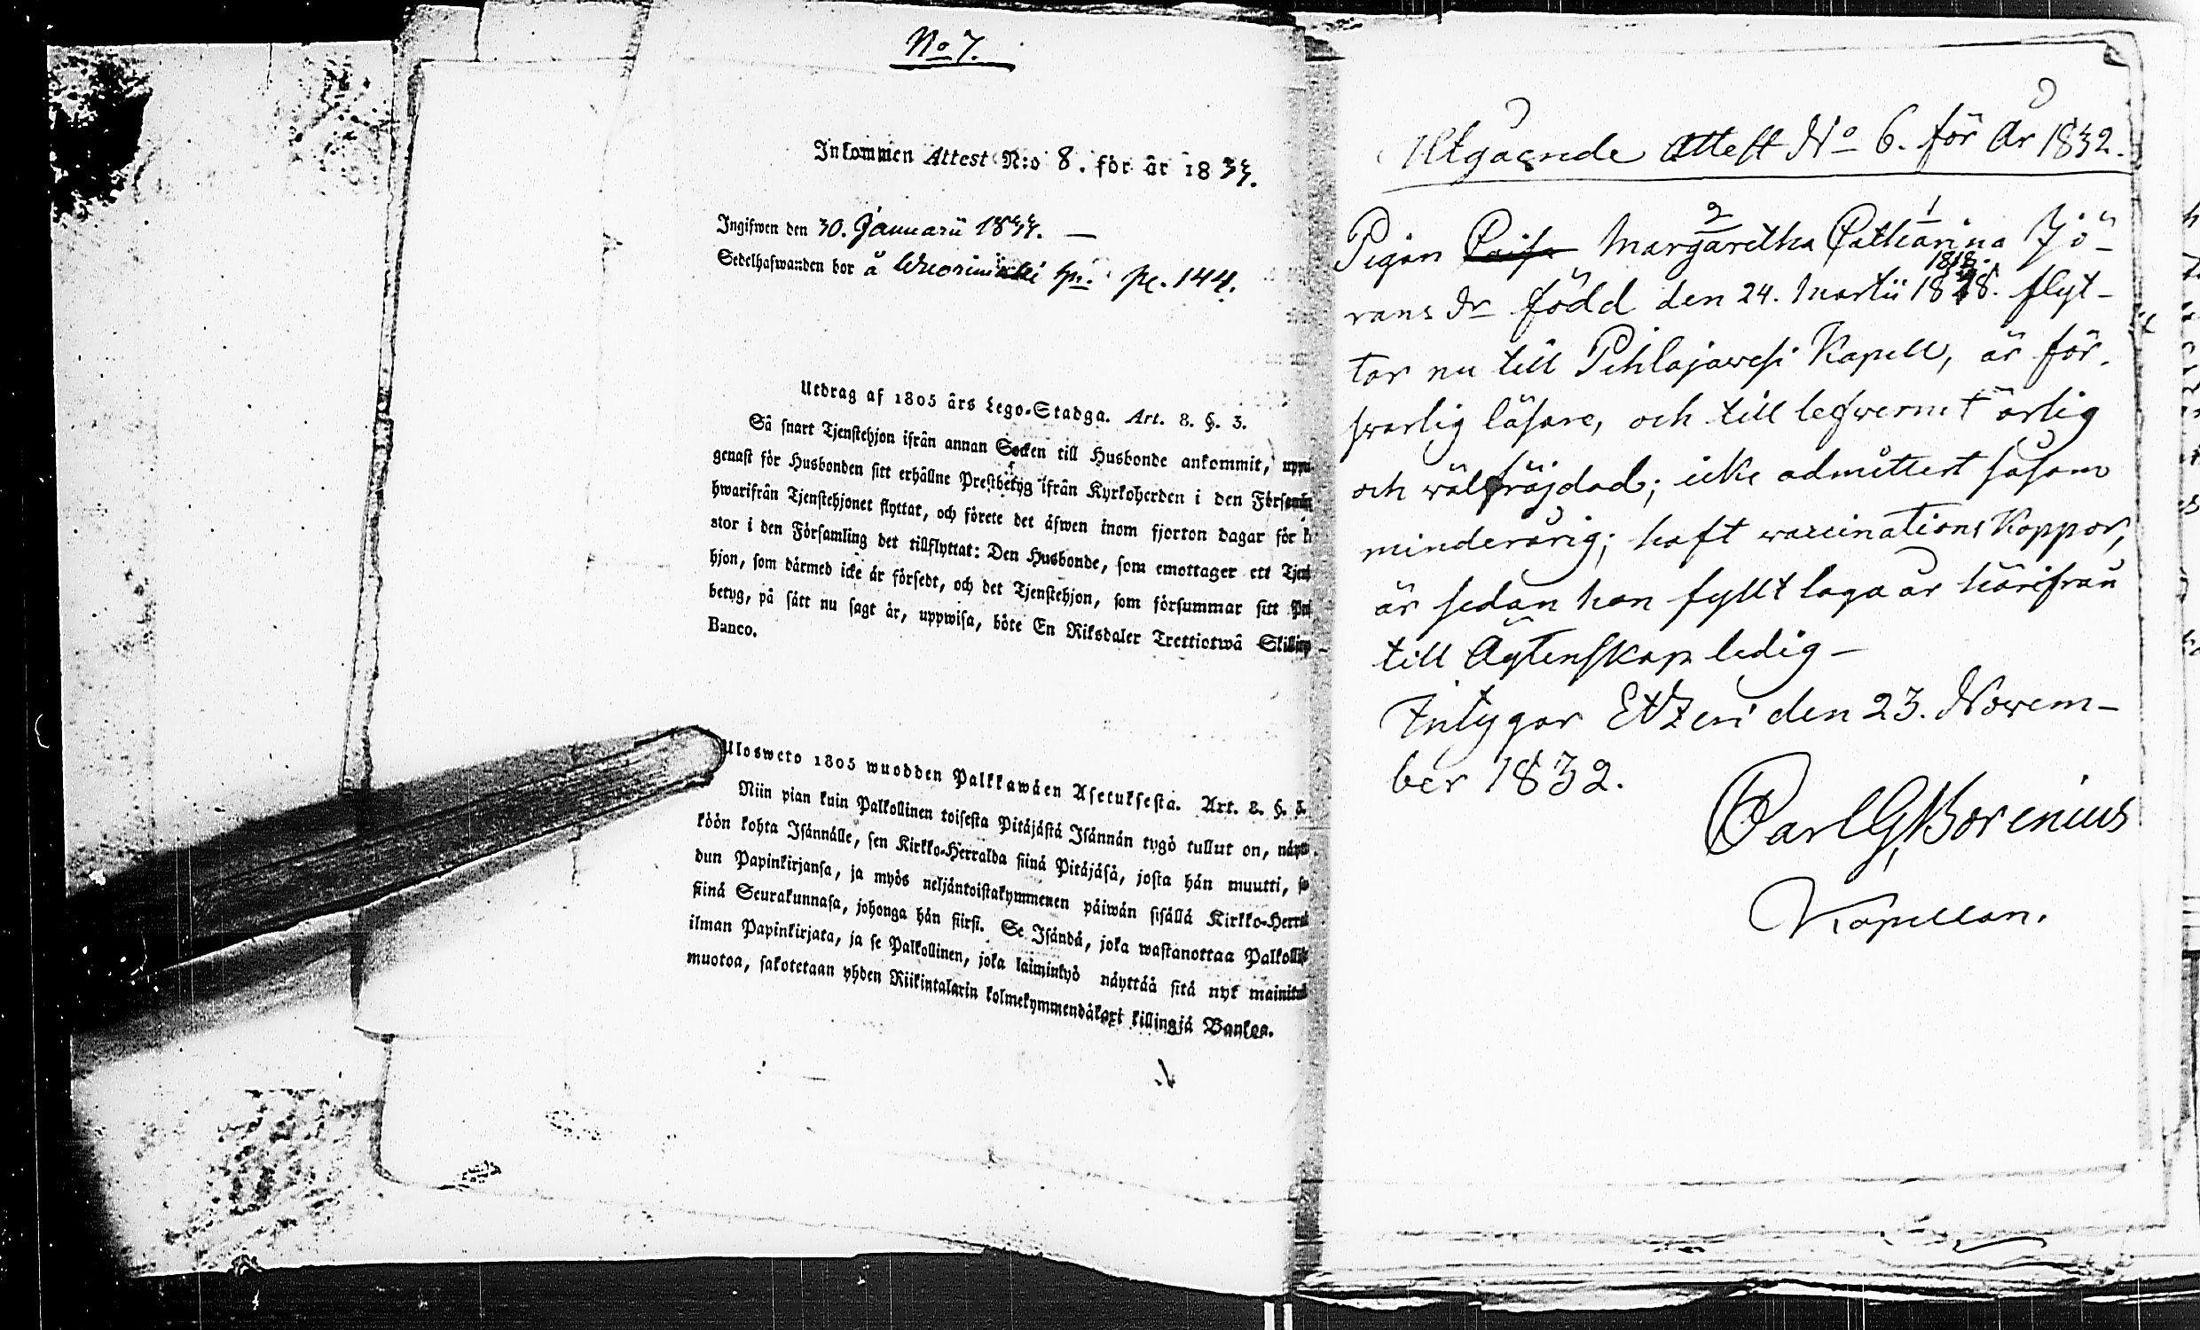 No 7.
Inkommen Attest N:o 8. för år 1833.
Ingifwen den 30. Januarii 1833. —
Sedelhafwanden bor å Wuorimäki hn. pc. 144.
Utdrag af 1805 års Lego-Stadga. Art. 8. §. 3.
Så snart Tjenstehjon ifrån annan Socken till Husbonde ankommit,
genast för Husbonden sitt erhållne Prestbetyg ifrån Kyrkoherden i den
hwarifrån Tjenstehjonet flyttat, och förete det äfwen inom fjorton dagar för
stor i den Församling det tillflyttat: Den Husbonde, som emottager ett
hjon, som därmed icke är försedt, och det Tjenstehjon, som försummar sitt
betyg, på sätt nu sagt är, uppwisa, böte En Riksdaler Trettiotwå Skilling
Banco.
Ulosweto 1805 wuodden Palkkawäen Asetuksesta. Art. 8. §. 3.
Niin pian kuin Palkollinen toisesta Pitäjästä Isännän tygö tullut on,
köön kohta Isännälle, sen Kirkko-Herralda siinä Pitäjäsä, josta hän muutti,
dun Papinkirjansa, ja myös neljäntoistakymmenen päiwän sisällä Kirkko-
siinä Seurakunnasa, johonga hän siirsi. Se Isändä, joka wastanottaa
ilman Papinkirjata, ja se Palkollinen, joka laiminlyö näyttää sitä nyt
muotoa, sakotetaan yhden Riikintalarin kolmekymmendäkaxi killingjä Bankoa.
Utgående Attest No 6. för År 1832.
2 1
Pigan Caisa Margaretha Catharina Jö-
1818.
rans Dr född den 24. Martii 1818. flyt-
tar nu till Pihlajawesi Kapell, är för-
swarlig läsare, och till lefwernet ärlig
och wälfräjdad; icke admitterd såsom
minderårig; haft waccinations Koppor,
är sedan hon fyllt laga år härifrån
till Ägtenskap ledig —
Intygar Etzeri den 23. Nowem-
ber 1832.
Carl G. Borenius
Kapellan.